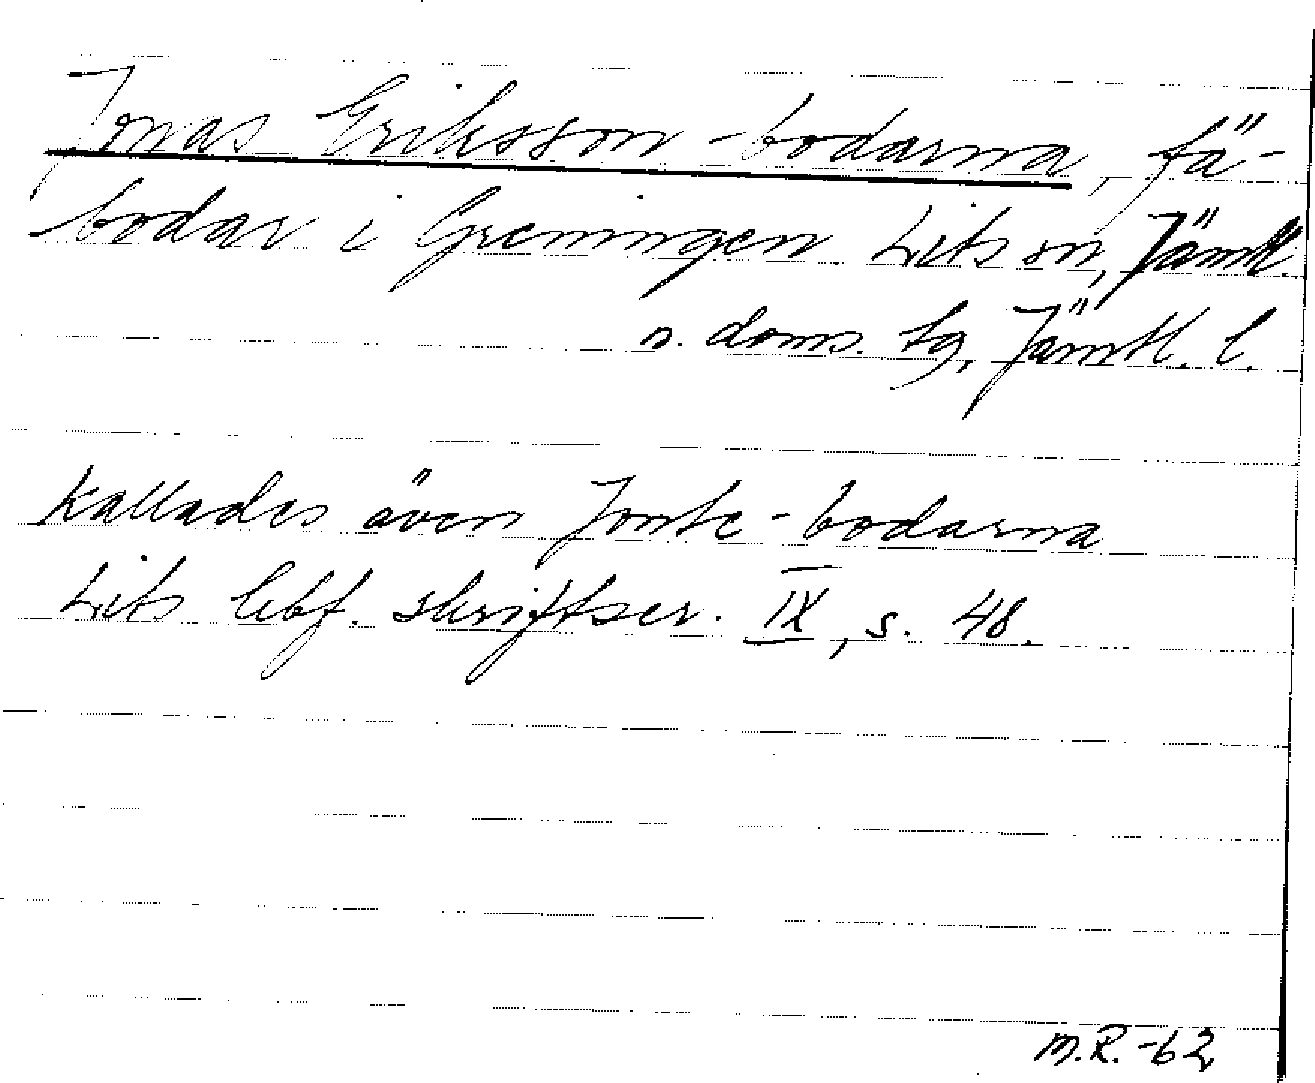 Jonas Eriksson-bodarna, fä-
bodar i Greningen Lits sn, Jämtl.
n. doms. tg, Jämtl. l.
Kallades även Jonte-bodarna
Lits hbf. skriftser. IX, s. 48.
M.R.-62